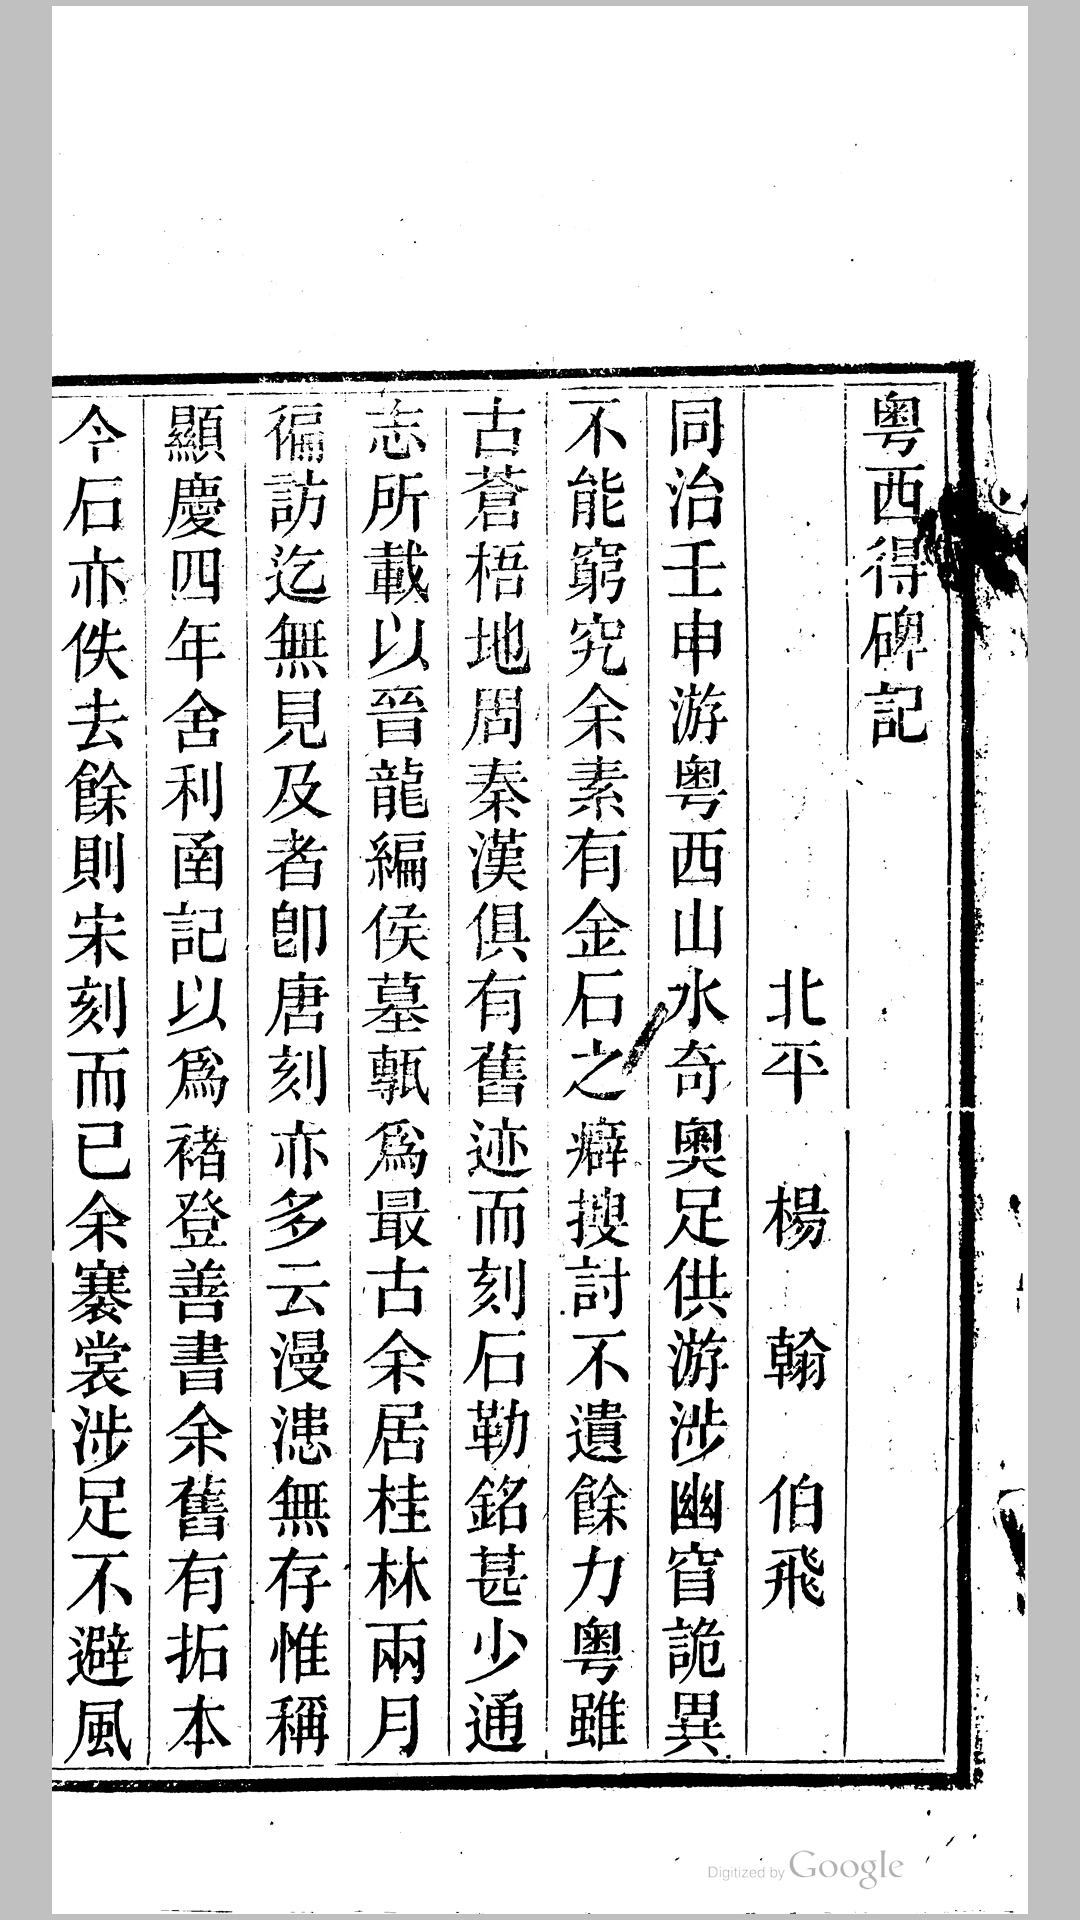 粵西得碑記
北平 楊 翰 伯飛
同治壬申游粵西山水奇奧足供游涉幽窅詭異
不能窮究余素有金石之癖搜討不遺餘力粵雖
古蒼梧地周秦漢俱有舊迹而刻石勒銘甚少通
志所載以晉龍編侯墓甎爲最古余居桂林兩月
徧訪迄無見及者卽唐刻亦多云漫漶無存惟稱
顯慶四年舍利函記以爲褚登善書余舊有拓本
今石亦佚去餘則宋刻而已余褰裳涉足不避風
Digitized by Google